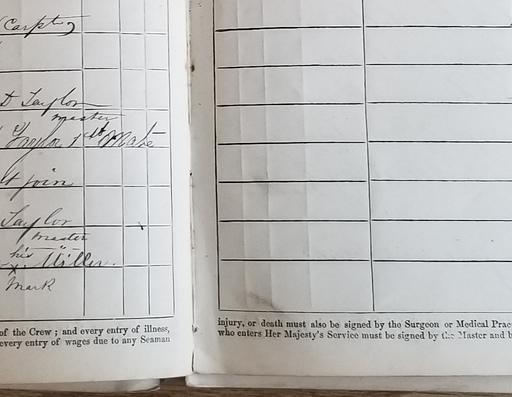 (Carptr)
t Taylor
master
Taylor 1st Mate
t join
Taylor
master
his
x Miller
Mark
of the Crew; and every entry of illness,
every entry of wages due to any Seaman
injury, or death must also be signed by the Surgeon or Medical Prac
who enters Her Majesty's Service must be signed by the Master and b